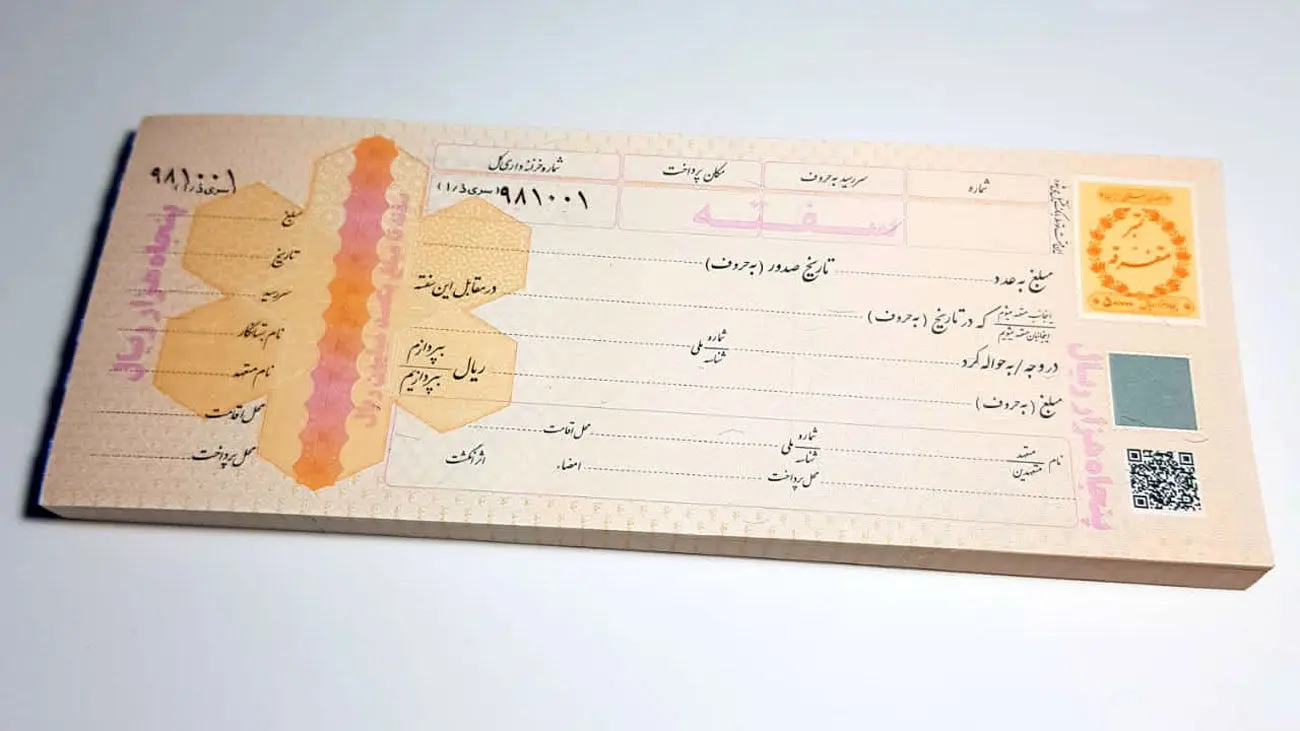 شماره خزانه داری کل
مکان پرداخت
سررسید به حروف
شماره
۹۸۱۰۰۱ (سری ذ/۱)
سفته
مبلغ به عدد
تاریخ صدور (به حروف)
در مقابل این سفته
که در تاریخ (به حروف)
در وجه / به حواله کرد
شماره ملی
شناسه
مبلغ (به حروف)
ریال
بپردازم
بپردازیم
نام
متعهد
متعهدین
شماره ملی
شناسه
محل اقامت
محل پرداخت
امضاء
اثر انگشت
تمبر
متفرقه
پنجاه هزار ریال
سفته تا مبلغ یکصد میلیون ریال
۹۸۱۰۰۱
(سری ذ/۱)
مبلغ
تاریخ
سررسید
نام بستانکار
نام متعهد
محل اقامت
محل پرداخت
پنجاه هزار ریال